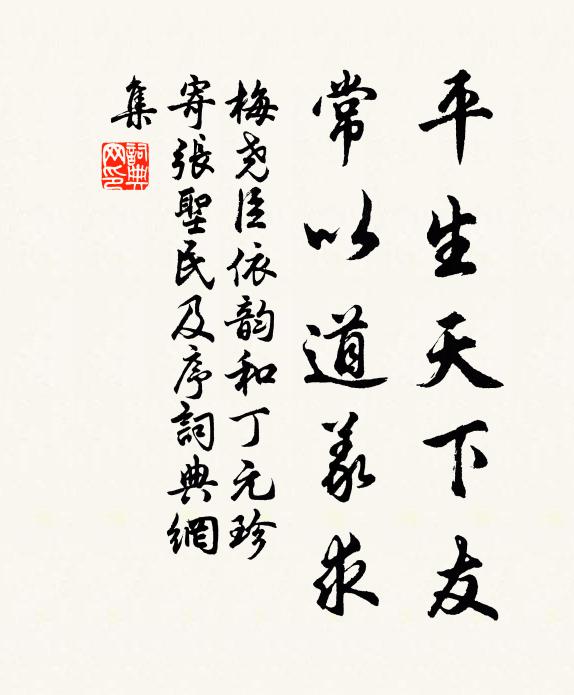 平生天下友
常以道義求
梅尧臣依韵和丁元珍
寄張聖民及序詞典網
集
詞典
网印